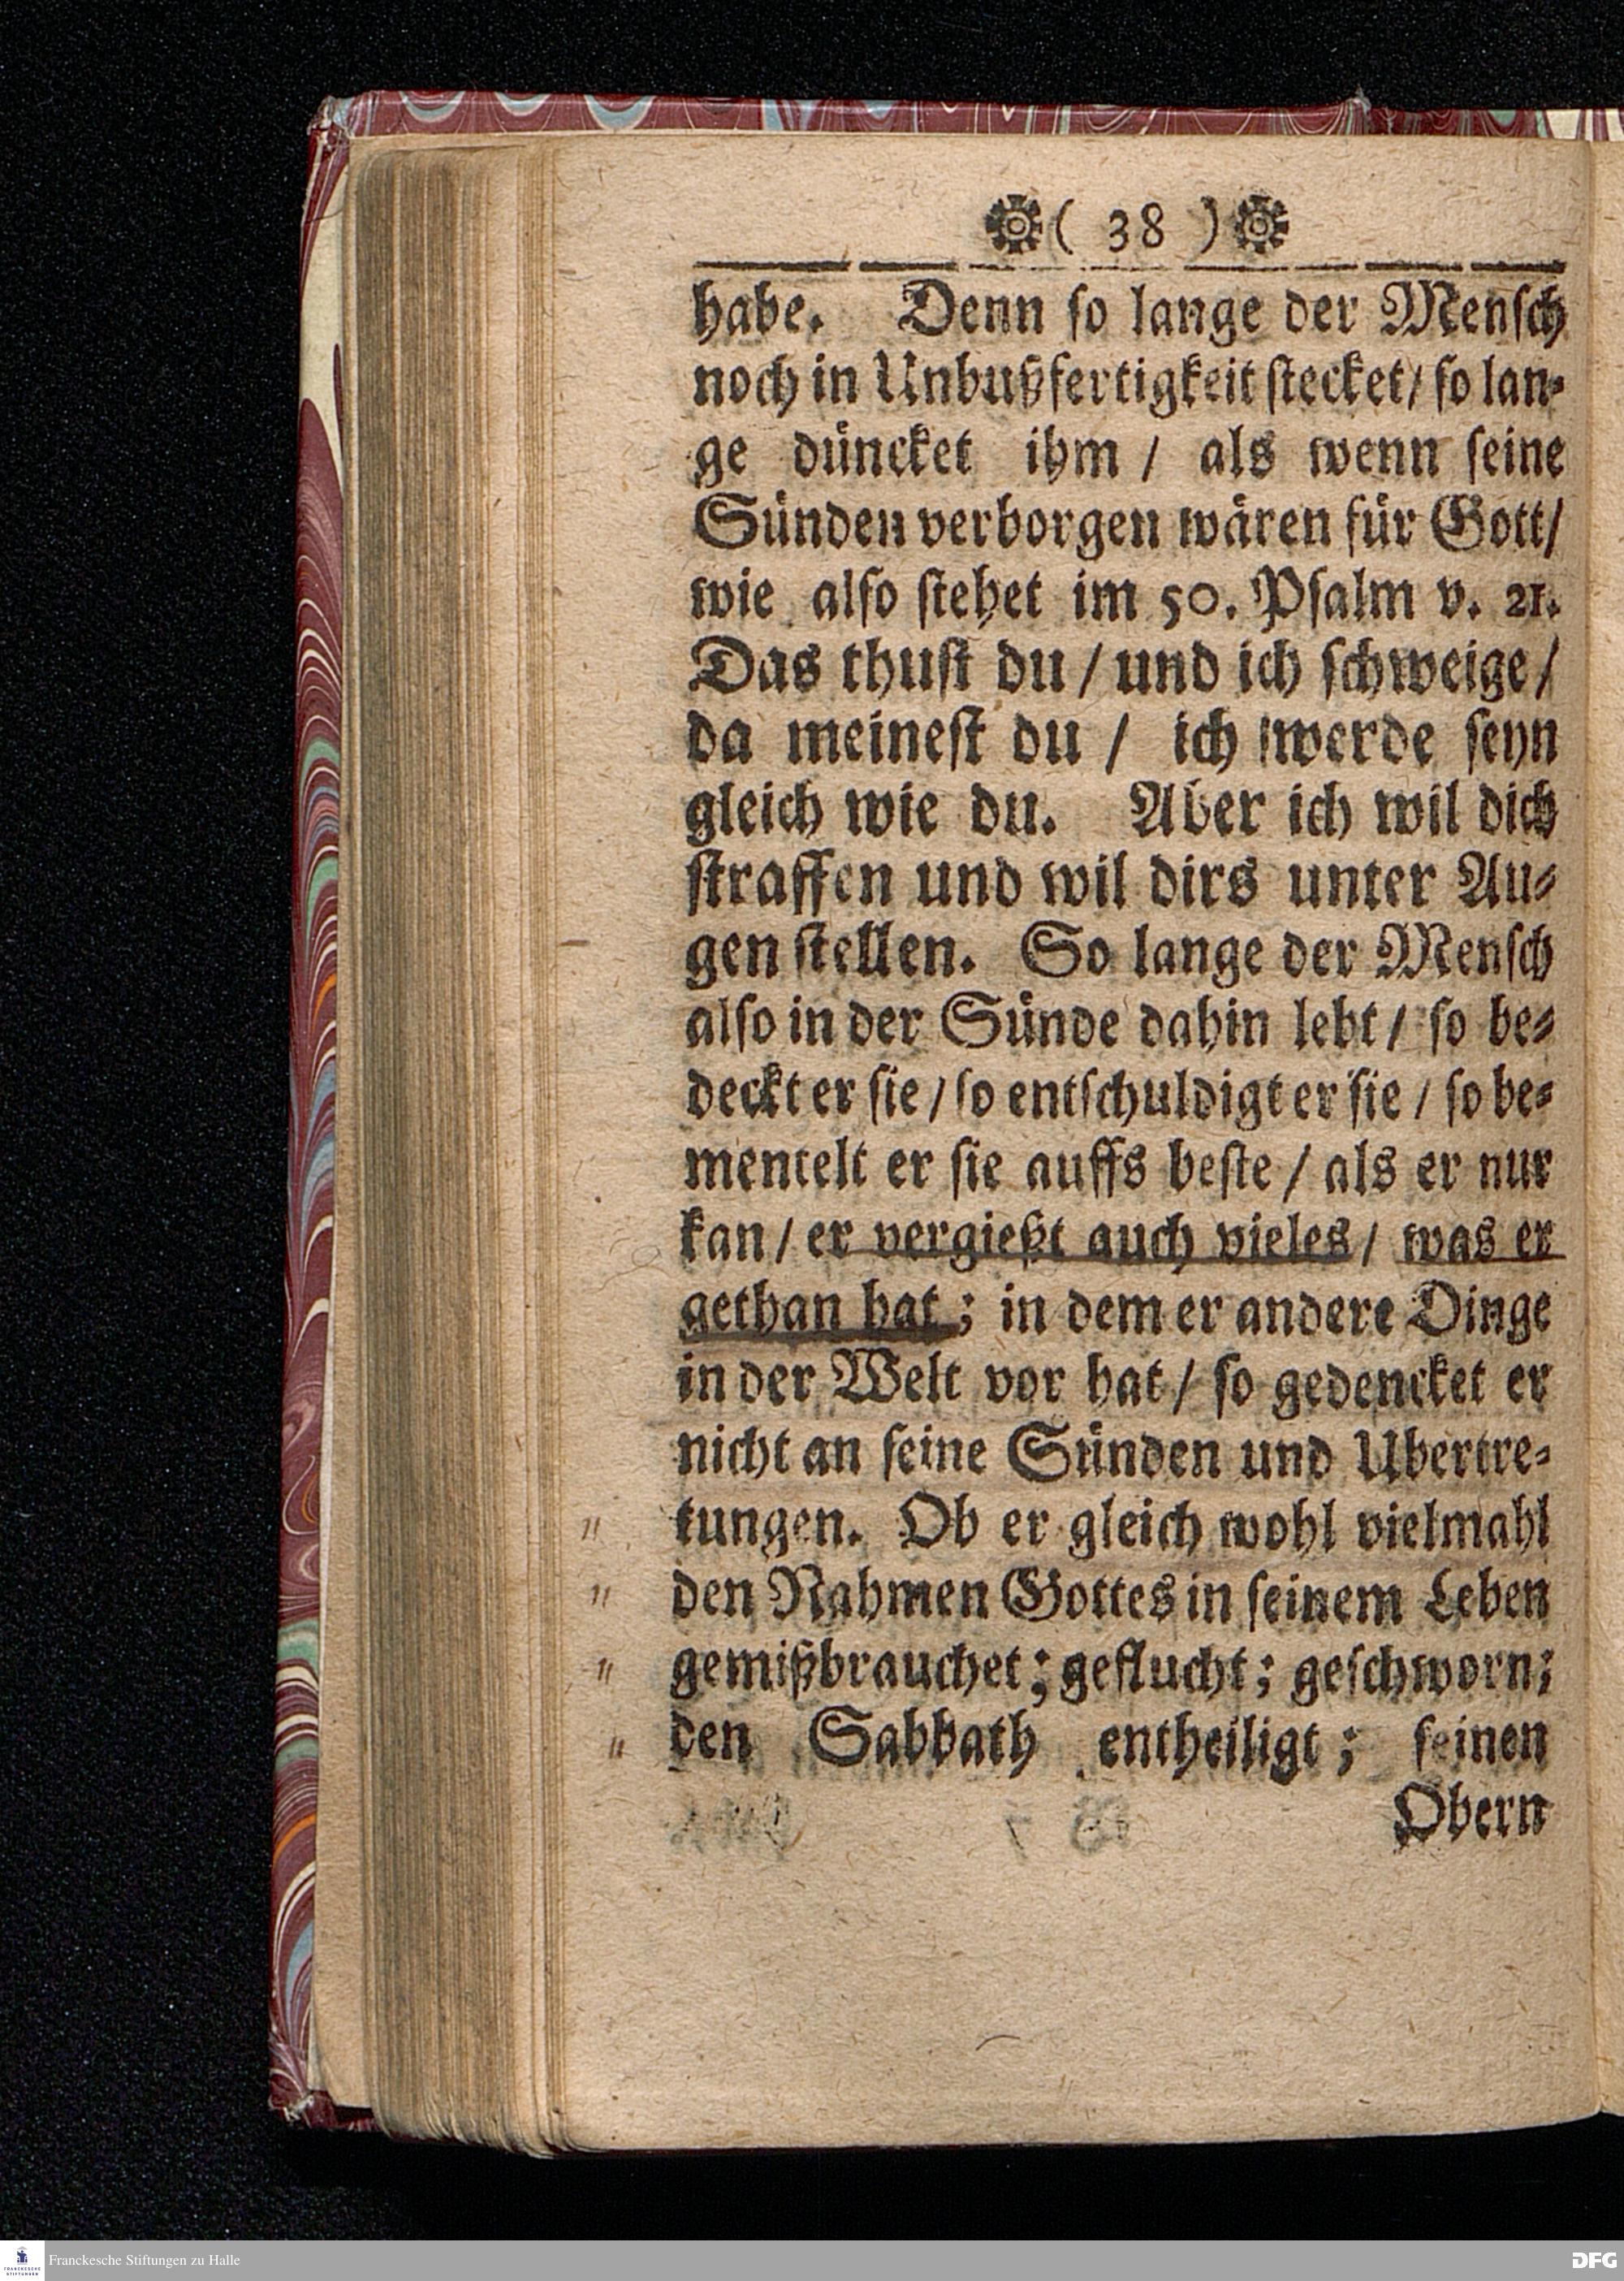 ( 38 )
habe. Denn ſo lange der Menſch
noch in Unbußfertigkeit ſtecket/ ſo lan-
ge düncket ihm / als wenn ſeine
Sünden verborgen wären für Gott/
wie alſo ſtehet im 50. Pſalm v. 21.
Das thuſt du / und ich ſchweige /
da meineſt du / ich werde ſeyn
gleich wie du. Aber ich wil dich
ſtraffen und wil dirs unter Au-
gen ſtellen. So lange der Menſch
alſo in der Sünde dahin lebt / ſo be-
deckt er ſie / ſo entſchuldigt er ſie / ſo be-
mentelt er ſie auffs beſte / als er nur
kan / er vergießt auch vieles / was er
gethan hat ; in dem er andere Dinge
in der Welt vor hat / ſo gedencket er
nicht an ſeine Sünden und Ubertre-
tungen. Ob er gleich wohl vielmahl
den Nahmen Gottes in ſeinem Leben
gemißbrauchet ; geflucht ; geſchworn ;
den Sabbath entheiligt ; ſeinen
Obern
Franckesche Stiftungen zu Halle
DFG